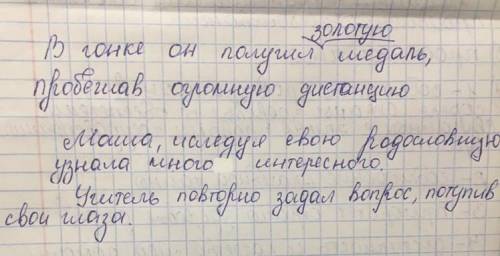 золотую
В гонке он получил медаль,
пробежав огромную дистанцию
Маша, иследуя свою родословную
узнала много интересного.
Учитель повторно задал вопрос, потупив
свои глаза.